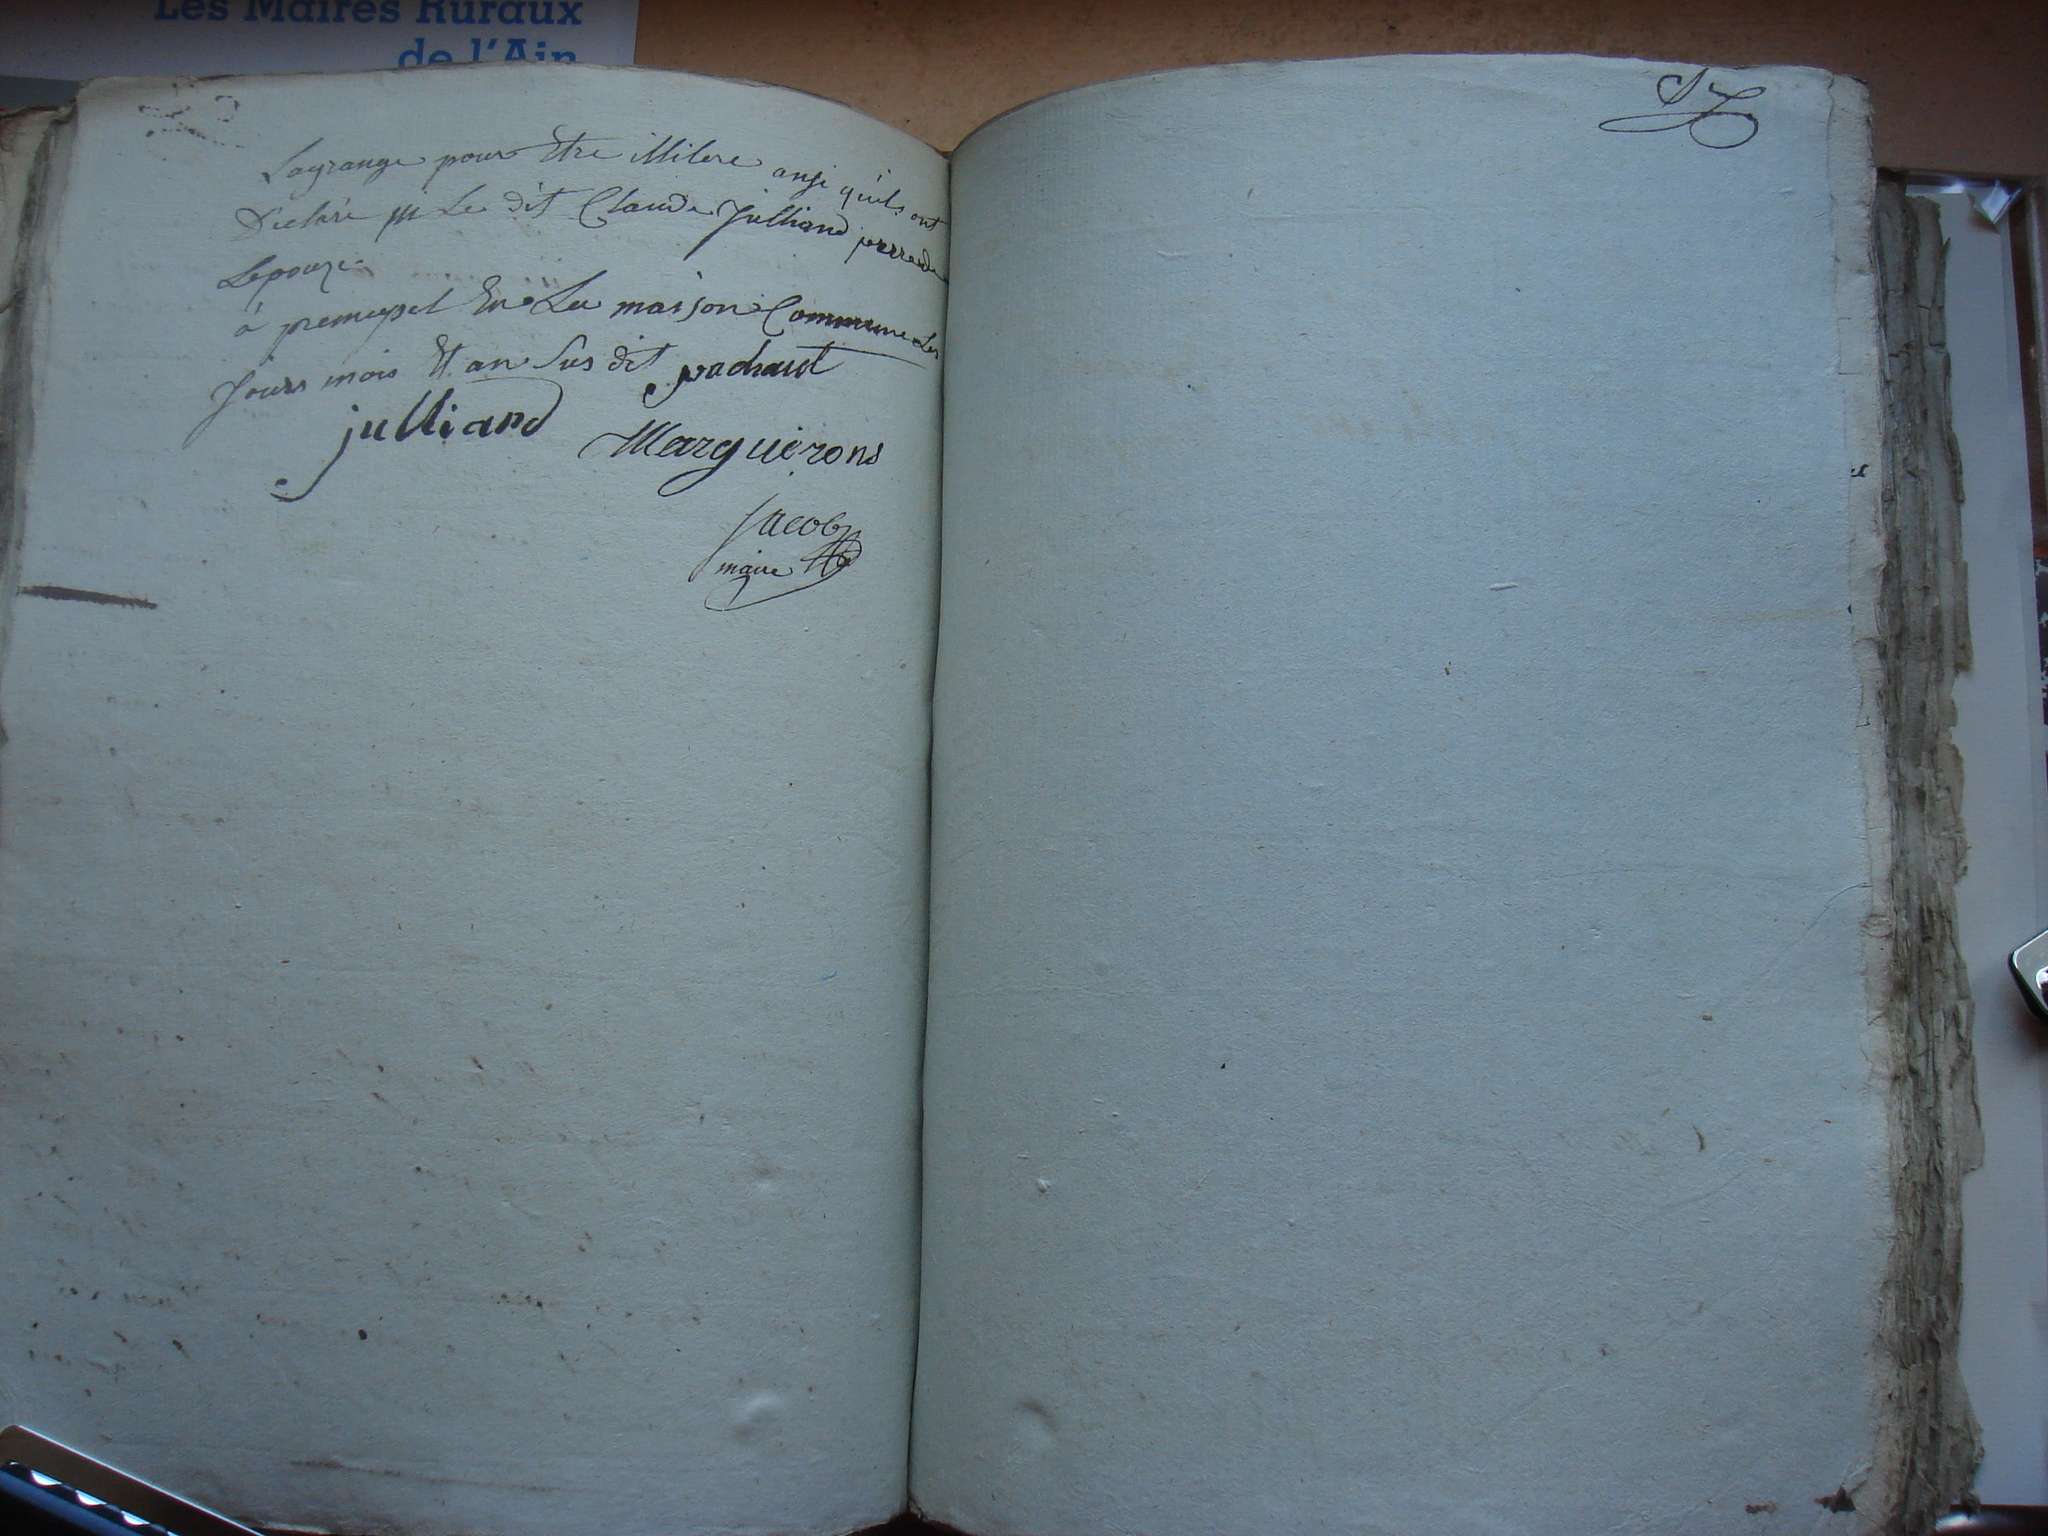 Les Maires Ruraux
de l'Ain
Lagrange pour Etre illitere ansi qu'ils ont
Declaré Le dit Claude Julliand
Lepouze
à premeysel En La maison Commune Les
Jours mois Et an Sus dit pachaut
julliand
Marguerons
Jacob
maire